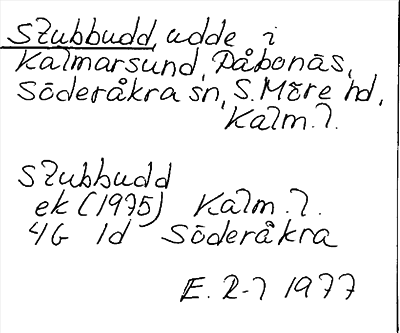 Stubbudd, udde i
Kalmarsund, Påbonäs,
Söderåkra sn, S. Möre hd,
Kalm. l.
Stubbudd
ek (1975) Kalm. l.
4G 1d Söderåkra
E. R-7 1977